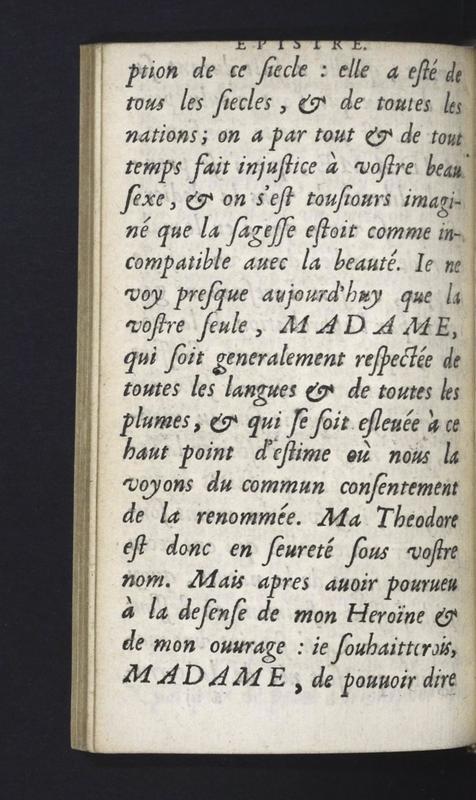 EPISTRE.
ption de ce ſiecle : elle a eſté de
tous les ſiecles, & de toutes les
nations; on a par tout & de tout
temps fait injuſtice à voſtre beau
ſexe, & on s'eſt touſiours imagi-
né que la ſageſſe eſtoit comme in-
compatible auec la beauté. Ie ne
voy preſque aujourd'huy que la
voſtre ſeule, MADAME,
qui ſoit generalement reſpectée de
toutes les langues & de toutes les
plumes, & qui ſe ſoit eſleuée à ce
haut point d'eſtime où nous la
voyons du commun conſentement
de la renommée. Ma Theodore
eſt donc en ſeureté ſous voſtre
nom. Mais apres auoir pourueu
à la defenſe de mon Heroïne &
de mon ouurage : ie ſouhaitterois,
MADAME, de pouuoir dire